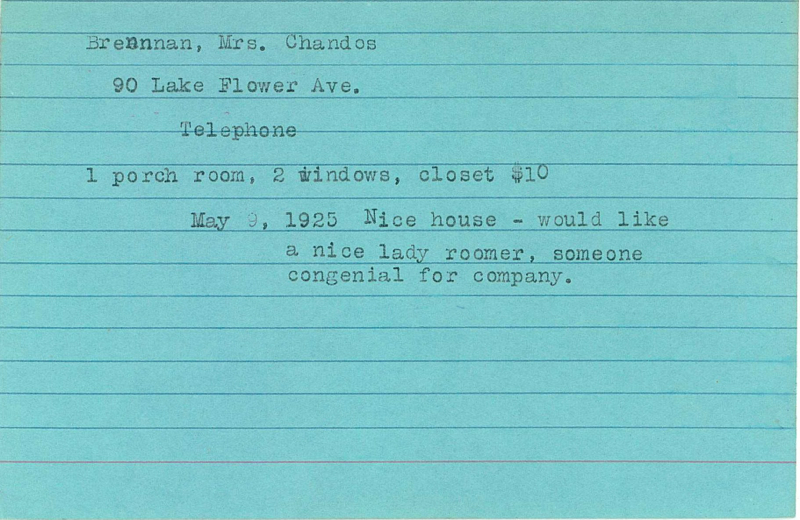 Brennnan, Mrs. Chandos
90 Lake Flower Ave.
Telephone
1 porch room, 2 windows, closet $10
May 9, 1925 Nice house - would like
a nice lady roomer, someone
congenial for company.